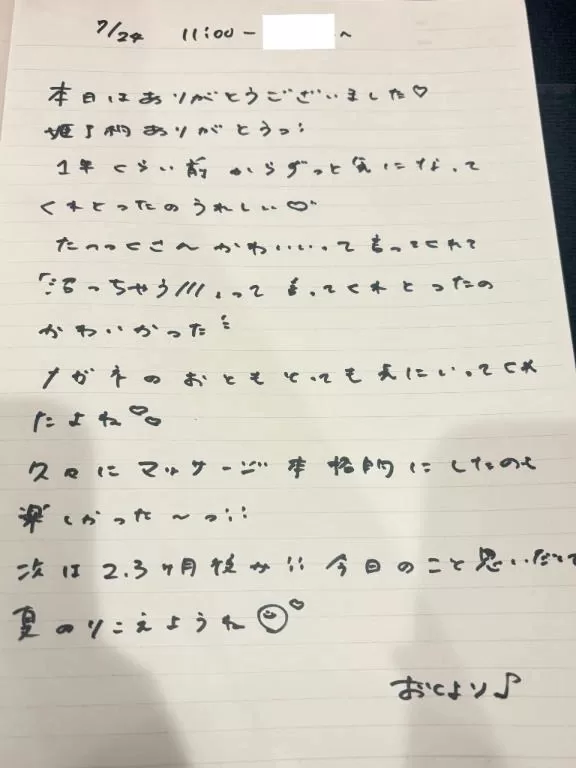 7/24 11:00 ー ~
本日はありがとうございました♡
指了枘ありがとうっ!
1年くらい前からずっと気になって
くれとったのうれしい♡
たっっくさんかわいいって言ってくれて
「沼っちゃう///」って言ってくれとったの
かわいかった!
メガネのおともとっても気にいってくれ
たよね♡♡
久々にマッサージ本格的にしたのも
楽しかった〜っ!!
次は2.3ヶ月後か!!今日のこと思いだして
夏のりこえようね♡
おとより♪